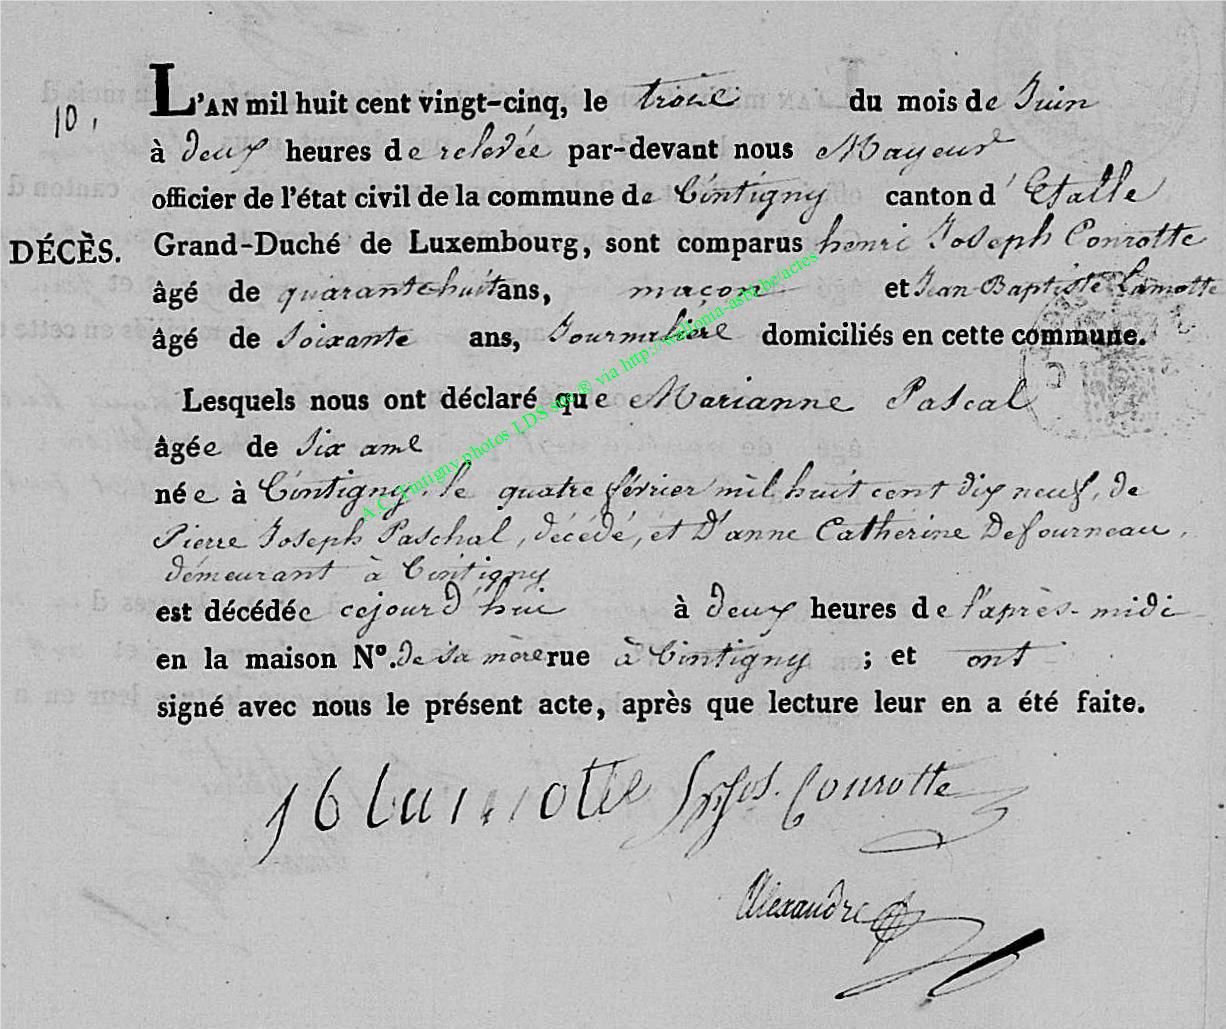 10.
L'AN mil huit cent vingt-cinq, le troiie du mois de Juin
à deux heures de relevée par-devant nous Mayeur
officier de l'état civil de la commune de Tintigny canton d' Etalle
DÉCÈS. Grand-Duché de Luxembourg, sont comparus henri Joseph Conrotte
âgé de quarante huit ans, maçon et Jean Baptiste Lamotte
âgé de Soixante ans, Journaliere domiciliés en cette commune.
Lesquels nous ont déclaré que Marianne Pascal
âgée de Six ans
née à Tintigny, le quatre février mil huit cent dix neuf, de
Pierre Joseph Paschal, décédé, et D'anne Catherine Defourneau,
demeurant à Tintigny
est décédée cejourd'hui à deux heures de l'après-midi
en la maison N°. de sa mère rue à Tintigny ; et ont
signé avec nous le présent acte, après que lecture leur en a été faite.
Conrotte
Alexandre
A.C. Tintigny photos LDS site ® via http://wallonia-asbl.be/actes